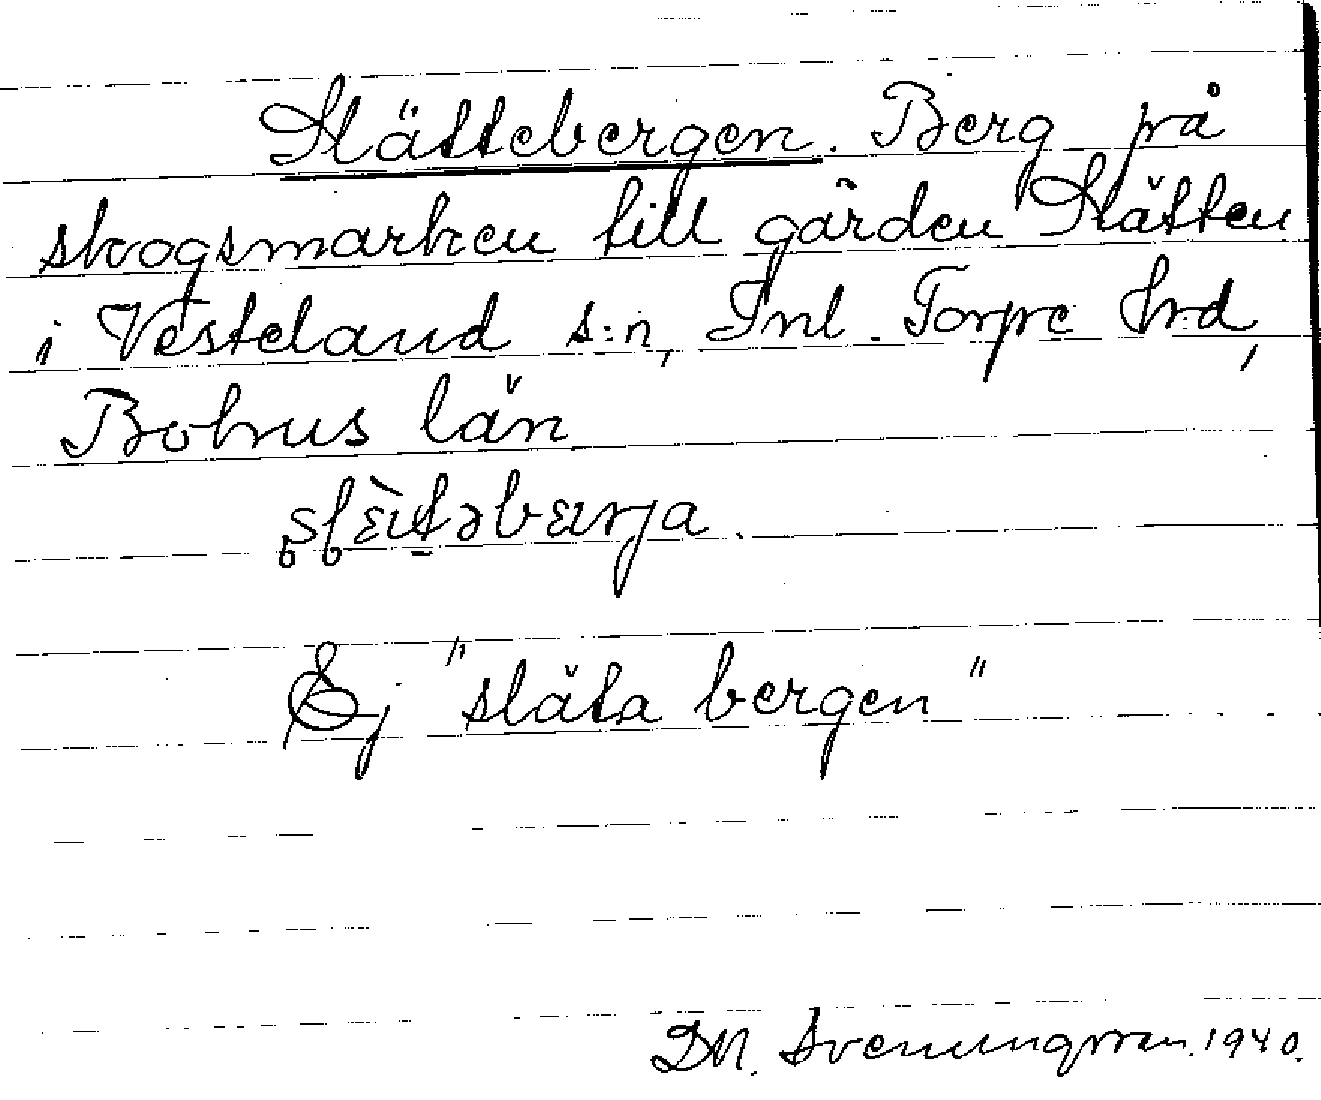 Slättebergen. Berg på
skogsmarken till gården Slätten
i Vesteland s:n, Inl. Torpe hrd,
Bohus län
Ej "släta bergen"
D.N. Svenungsson. 1940.